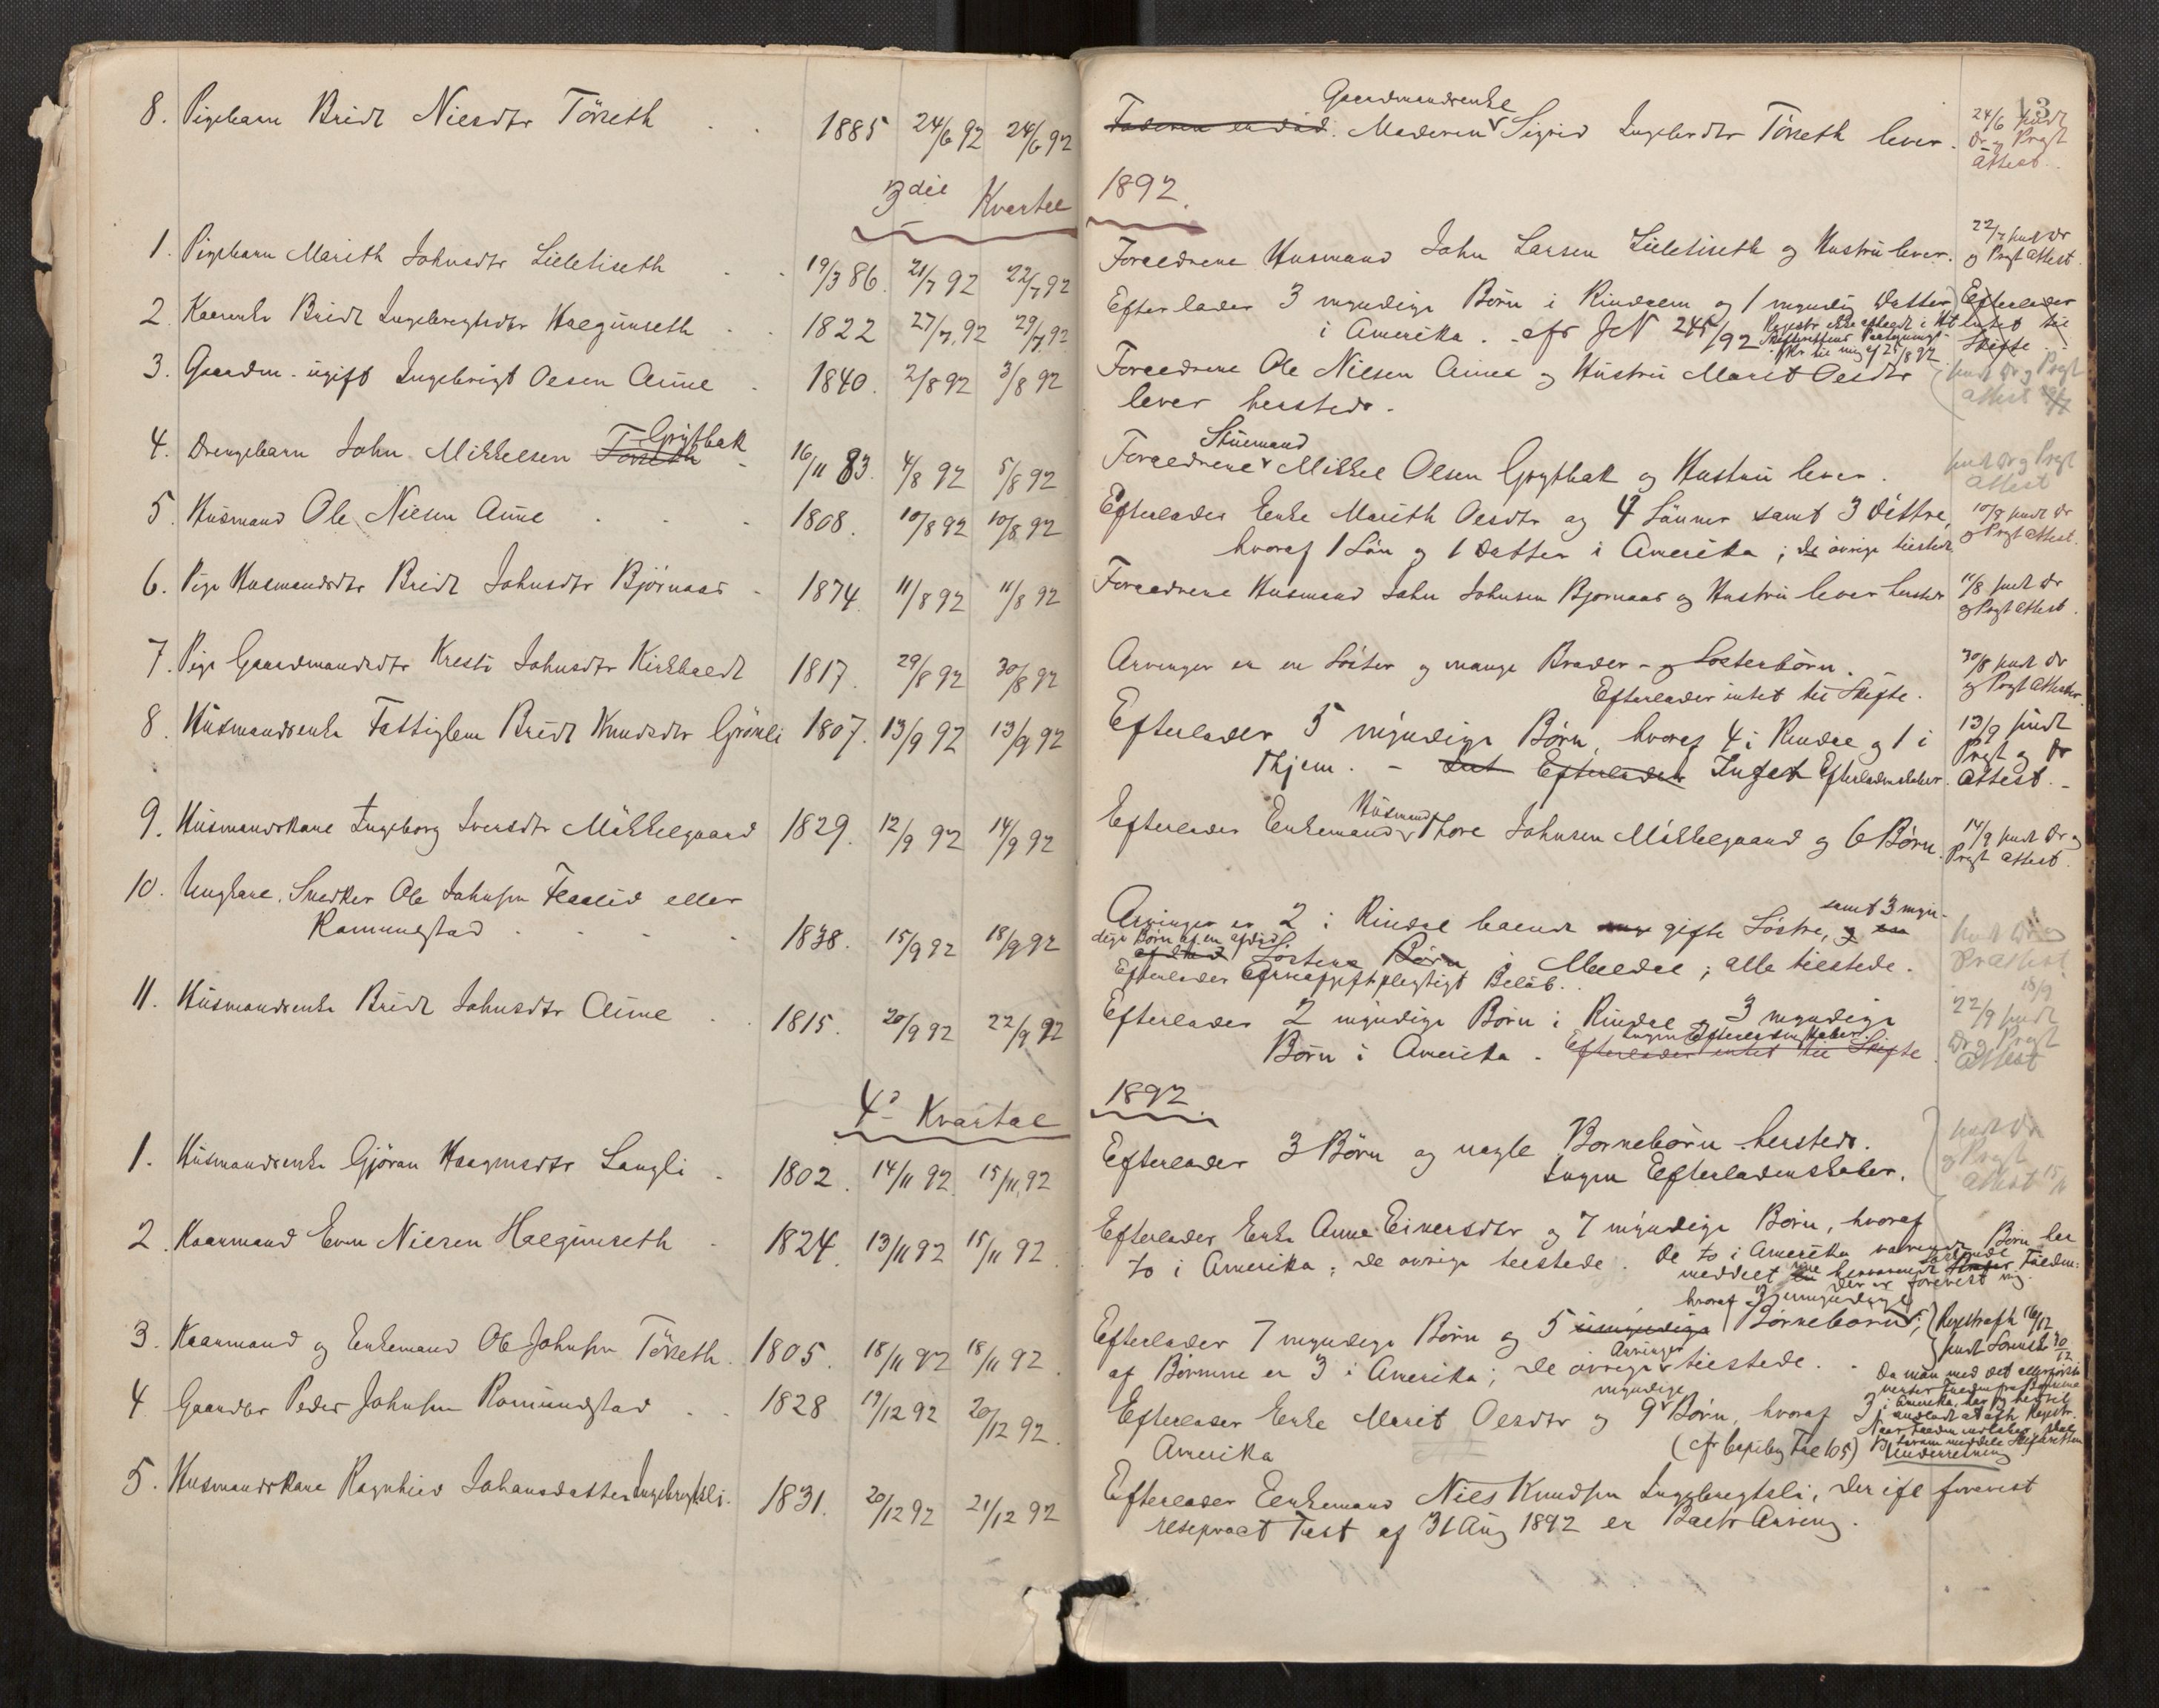 8. Pigebarn Bridt Nilsdtr Törseth . . 1885 24/6 92 24/6 92
3die Kvartal
1. Pigebarn Marith Johnsdtr Lilletiseth . . 19/3 86. 21/7 92 22/7 92
2. Kaarenke Bridt Ingebregtsdtr Halgunseth . . 1822 27/7 92 29/7 92
3. Gaardm. ugift Ingebrigt Olsen Aune . 1840. 2/8 92 3/8 92
Grytbak
4. Drengebarn John Mikkelsen Törseth - 16/11 83. 4/8 92 5/8 92
5. Husmand Ole Nilsen Aune . . . 1808. 10/8 92 10/8 92
6. Pige Husmandsdtr Bridt Johnsdtr Björnaas - 1874. 11/8 92 11/8 92
7. Pige Gaardmandsdtr Kresti Johnsdtr Kirkholdt 1817. 29/8 92 30/8 92
8. Husmandsenke Fattiglem Bridt Knudsdtr Grönli 1807. 13/9 92 13/9 92
9. Husmandskone Ingeborg Iversdtr Mikkelgaard 1829. 12/9 92 14/9 92
10. Ungkarl. Snedker Ole Johnsen Flaalid eller
Romundstad . . . . 1838. 15/9 92 18/9 92
11. Husmandsenke Bridt Johnsdtr Aune . . 1815. 20/9 92 22/9 92
4de Kvartal
1. Husmandsenke Gjöran Haagensdtr Langli . 1802. 14/11 92. 15/11 92
2. Kaarmand Even Nilsen Halgunseth . 1824. 13/11 92 15/11 92.
3. Kaarmand og Enkemand Ole Johnsen Törseth. 1805. 18/11 92 18/11 92.
4 Gaardbr Peder Johnsen Romundstad . . 1828 19/12 92 20/12 92.
5. Husmandskone Ragnhild Johansdatter Ingebregtsli. 1831. 20/12 92 21/12 92
13
Gaardmandsenke
Faderen er död. Moderen Sigrid Ingebrdtr Törseth lever.
24/6 sendt
Dr og Prgt
Attest.
1892.
Forældrene Husmand John Larsen Lilletiseth og Hustru lever.
22/7 sendt Dr
og Prgt Attest.
Efterlader 3 myndige Börn i Rindalen og 1 myndig Datter
i Amerika. cfr JN 245/92
til mig af 25/8 92
Efterlader
intet til
Skifte
Forældrene Ole Nilsen Aune og Hustru Marit Olsdtr
lever herstedr.
sendt Dr og Prgt
attest
Stuemand
Forældrene Mikkel Olsen Grytbak og Hustru lever.
sendt Dr og Prgt
Attest
Efterlader Enke Marith Olsdtr og 4 Sönner samt 3 döttre,
hvoraf 1 Sön og 1 Datter i Amerika; de övrige tilstede
10/8 sendt Dr
og Prgt Attest.
Forældrene Husmand John Johnsen Bjornaas og Hustru lever herstedr
11/8 sendt Dr
og Prgt Attest.
Arvinger er en Söster og mange Broder- og Sösterbörn. -
Efterlader intet til Skifte.
30/8 sendt Dr
og Prgt Attester.
Efterlader 5 myndige Börn, hvoraf 4 i Rindal og 1 i
Thjem. - Efterlader Intet Efterladenskaber.
13/9 sendt
Prgt og Dr
Attest. -
Husmand
Efterlader Enkemand Thore Johnsen Mikkelgaard og 6 Börn.
14/9 sendt Dr og
Prgt Attest.
samt 3 myn-
Arvinger er 2 i Rindal boende gifte Söstre,
dige Börn af en afdöd
Sösters Börn i Meldal; alle tilstede.
Efterlader Beløb.
sendt Dr og
Pr Attest
18/9
Efterlader 2 myndige Börn i Rindal og 3 myndige
Ingen Efterladenskaber.
Börn i Amerika. Efterlader intet til Skifte.
22/9 sendt
Dr og Prgt
Attest
1892.
Efterlader 3 Börn og nogle Bornebörn herstedr.
Ingen Efterladenskaber.
sendt Dr
og Prgt
Attest 15/11
Efterlader Enke Anne Einersdtr og 7 myndige Börn, hvoraf
to i Amerika; de ovrige tilstede. De to i Amerika værende Börn har
meddelt
der er forevist mig.
hvoraf 3 umyndige
Efterlader 7 myndige Börn og 5 umyndige Börneborn;
Arvinger
af Börnene er 3 i Amerika; de övrige tilstede. -
16/12
sendt Sorenskr 20/12
myndige
Efterlader Enke Marit Olsdtr og 9 Börn, hvoraf 3 i
Amerika
(cfr Fol 105)
Da man med det allerførste
venter Fuldm fra Börnene
i Amerika, har jeg hertil
undladt at afh Regstr.
Underretning
Efterlader Enkemand Niels Knudsen Ingebregtsli, der ifl forevist
Test af 31 Aug 1892 er Arving.